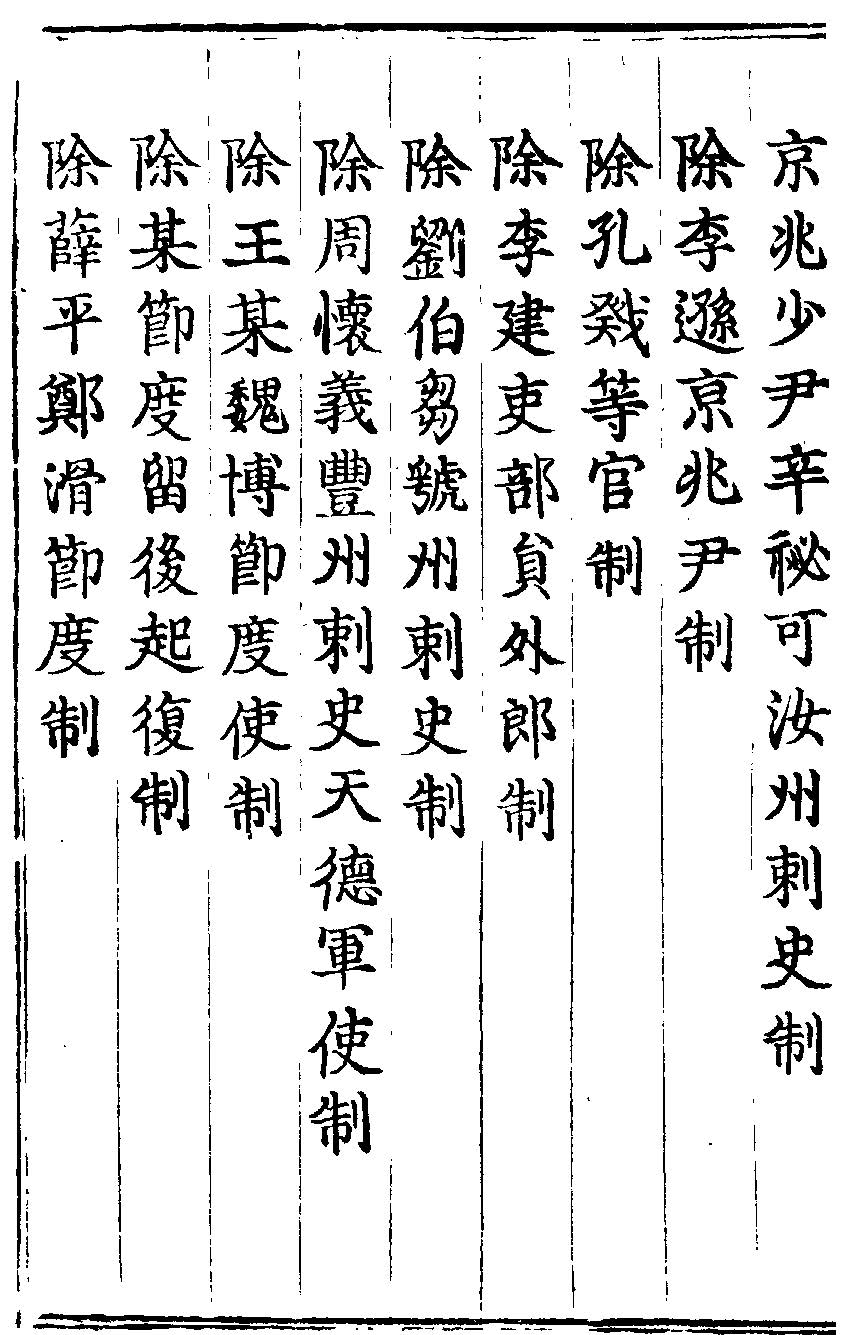 京兆少尹辛祕可汝州刺史制
除李遜京兆尹制
除孔戣等官制
除李建吏部員外郎制
除劉伯芻號州刺史制
除周懷義豐州刺史天德軍使制
除王某魏博節度使制
除某節度留後起復制
除薛平鄭滑節度制